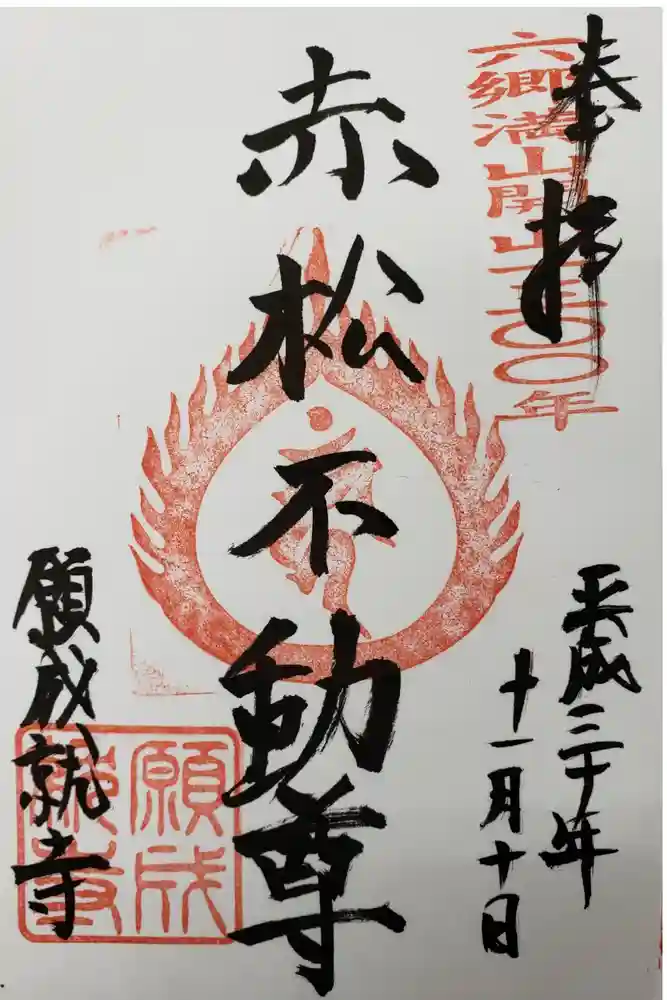 奉拝
六郷満山開山一三〇〇年
平成三十年
十一月十日
赤松不動尊
願成就寺
願成
就寺